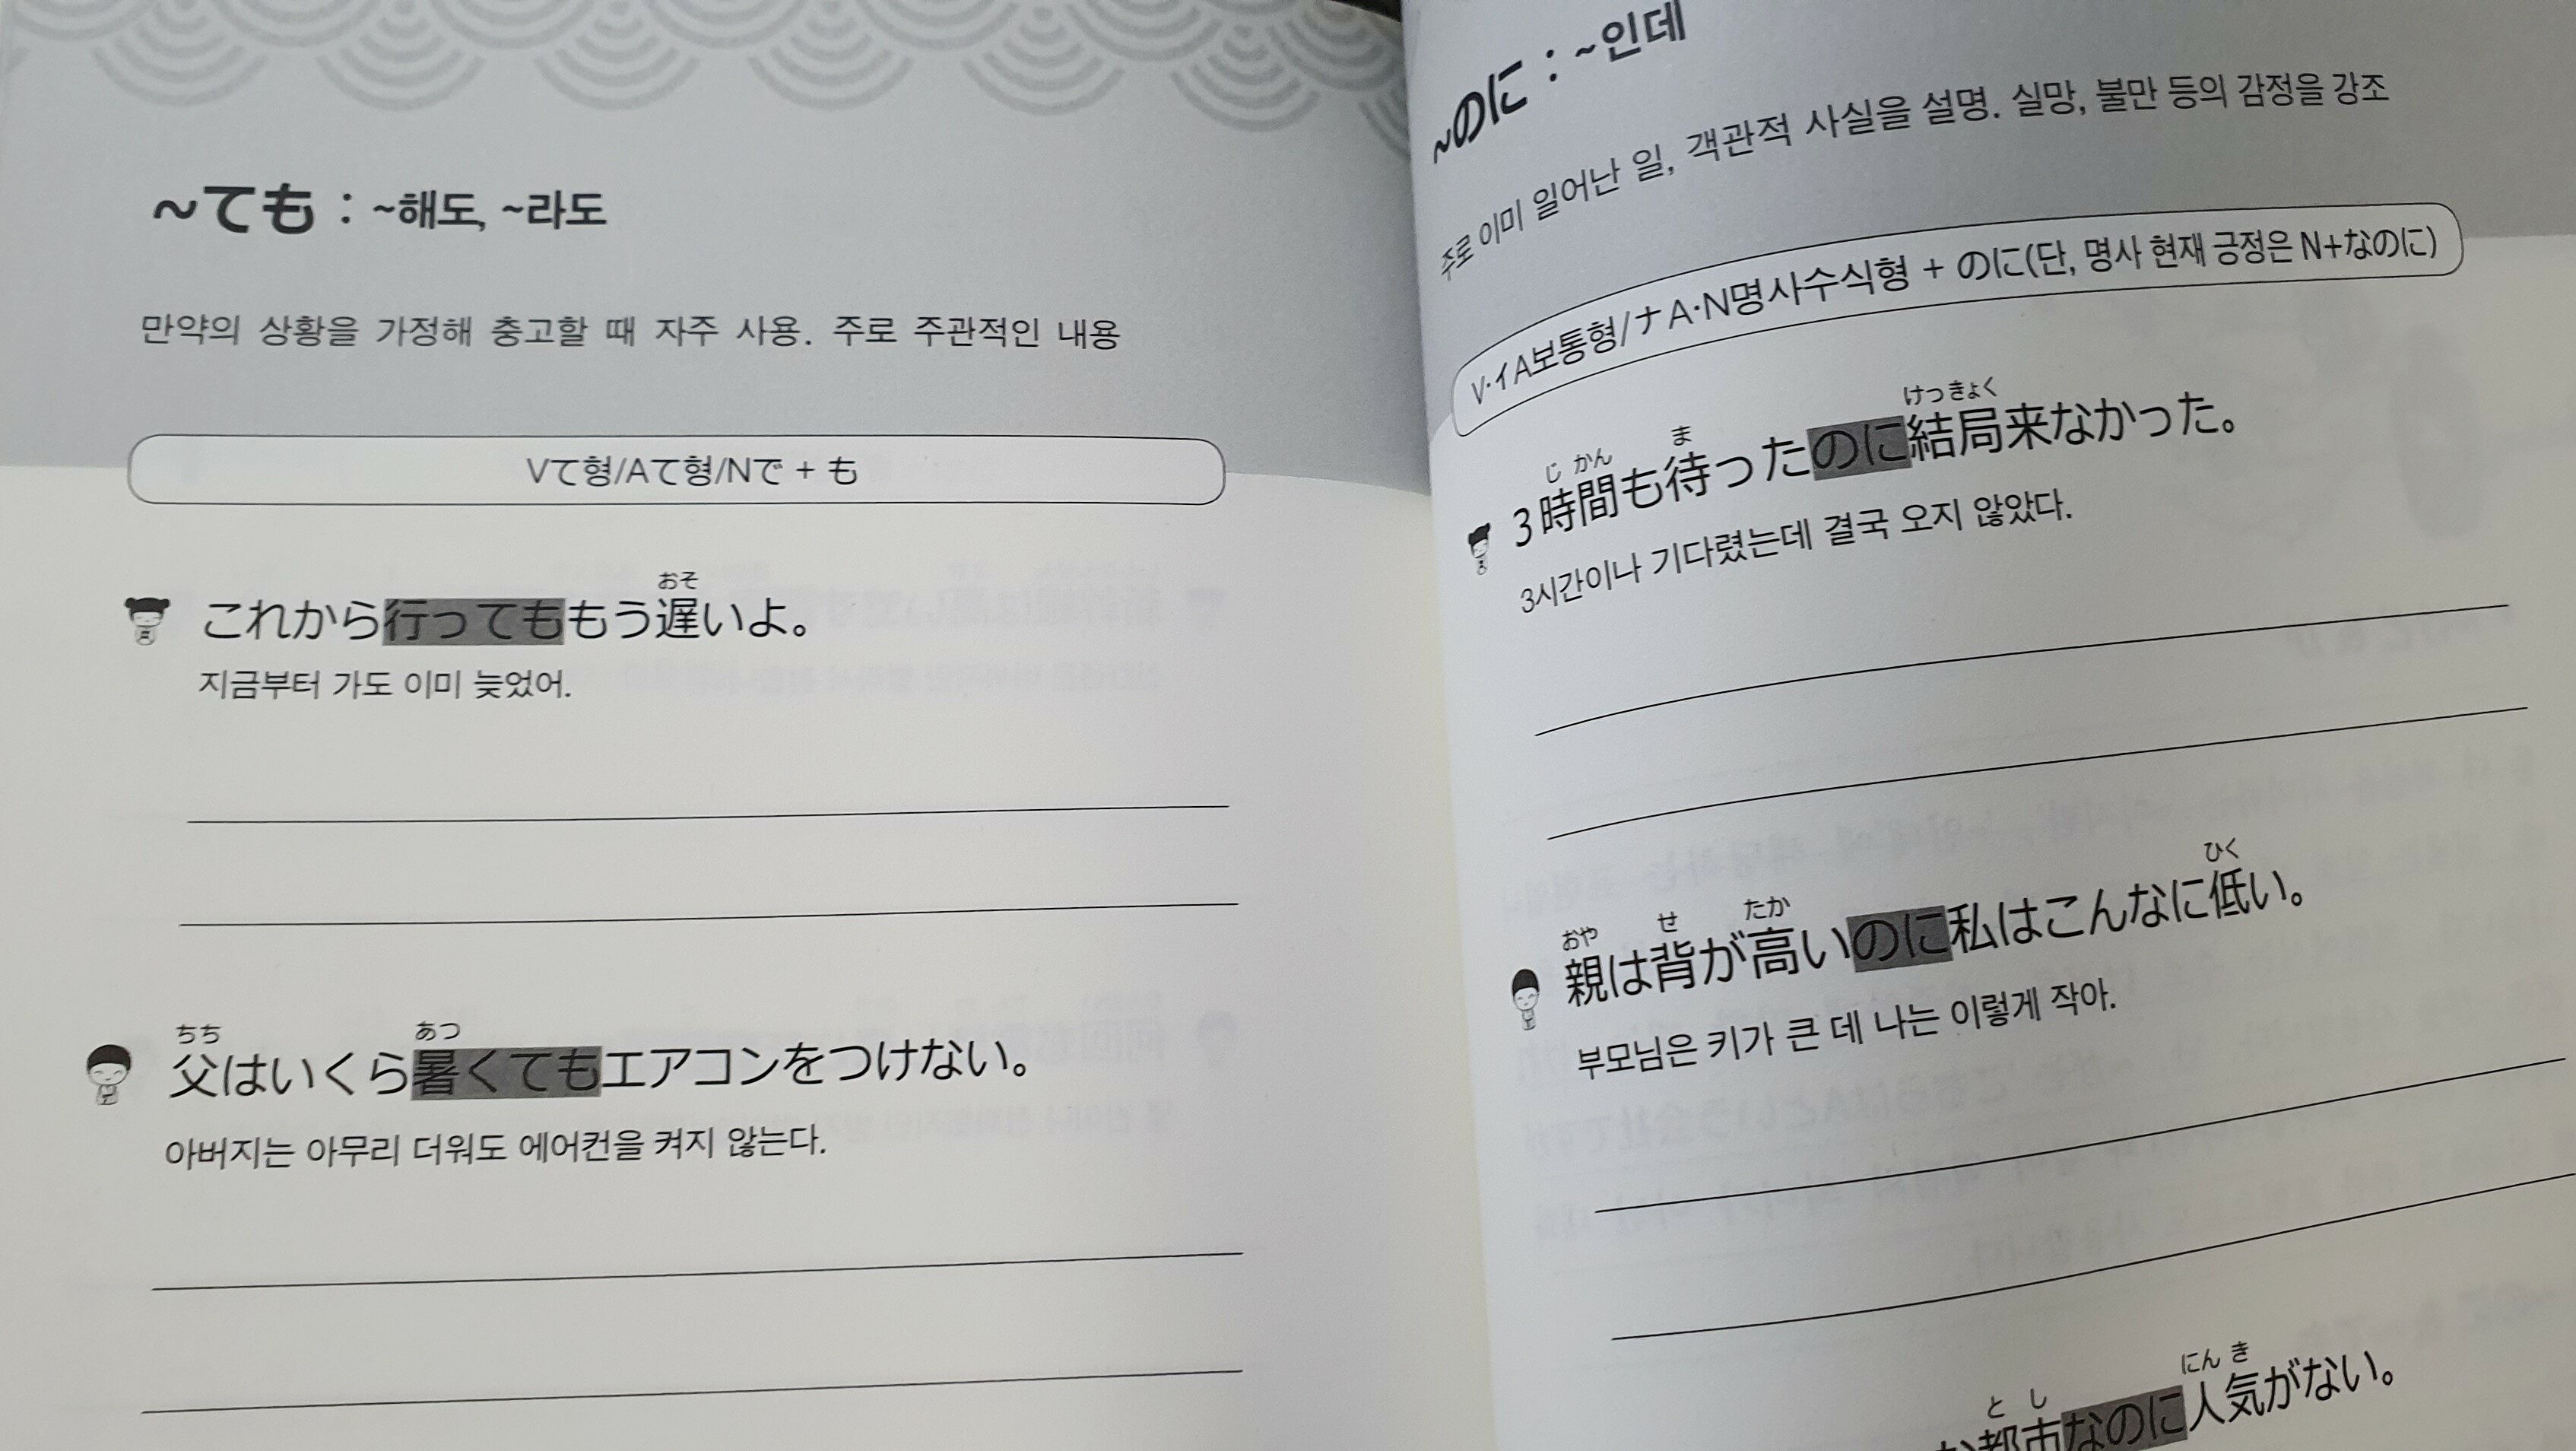 ~ても : ~해도, ~라도
만약의 상황을 가정해 충고할 때 자주 사용. 주로 주관적인 내용
Vて형/Aて형/Nで + も
おそ
これから行ってももう遅いよ。
지금부터 가도 이미 늦었어.
ちち あつ
父はいくら暑くてもエアコンをつけない。
아버지는 아무리 더워도 에어컨을 켜지 않는다.
~のに : ~인데
주로 이미 일어난 일, 객관적 사실을 설명. 실망, 불만 등의 감정을 강조
V·イA보통형/ナA·N명사수식형 + のに(단, 명사 현재 긍정은 N+なのに)
じ かん ま けっきょく
3時間も待ったのに結局来なかった。
3시간이나 기다렸는데 결국 오지 않았다.
おや せ たか ひく
親は背が高いのに私はこんなに低い。
부모님은 키가 큰 데 나는 이렇게 작아.
と し にん き
都市なのに人気がない。